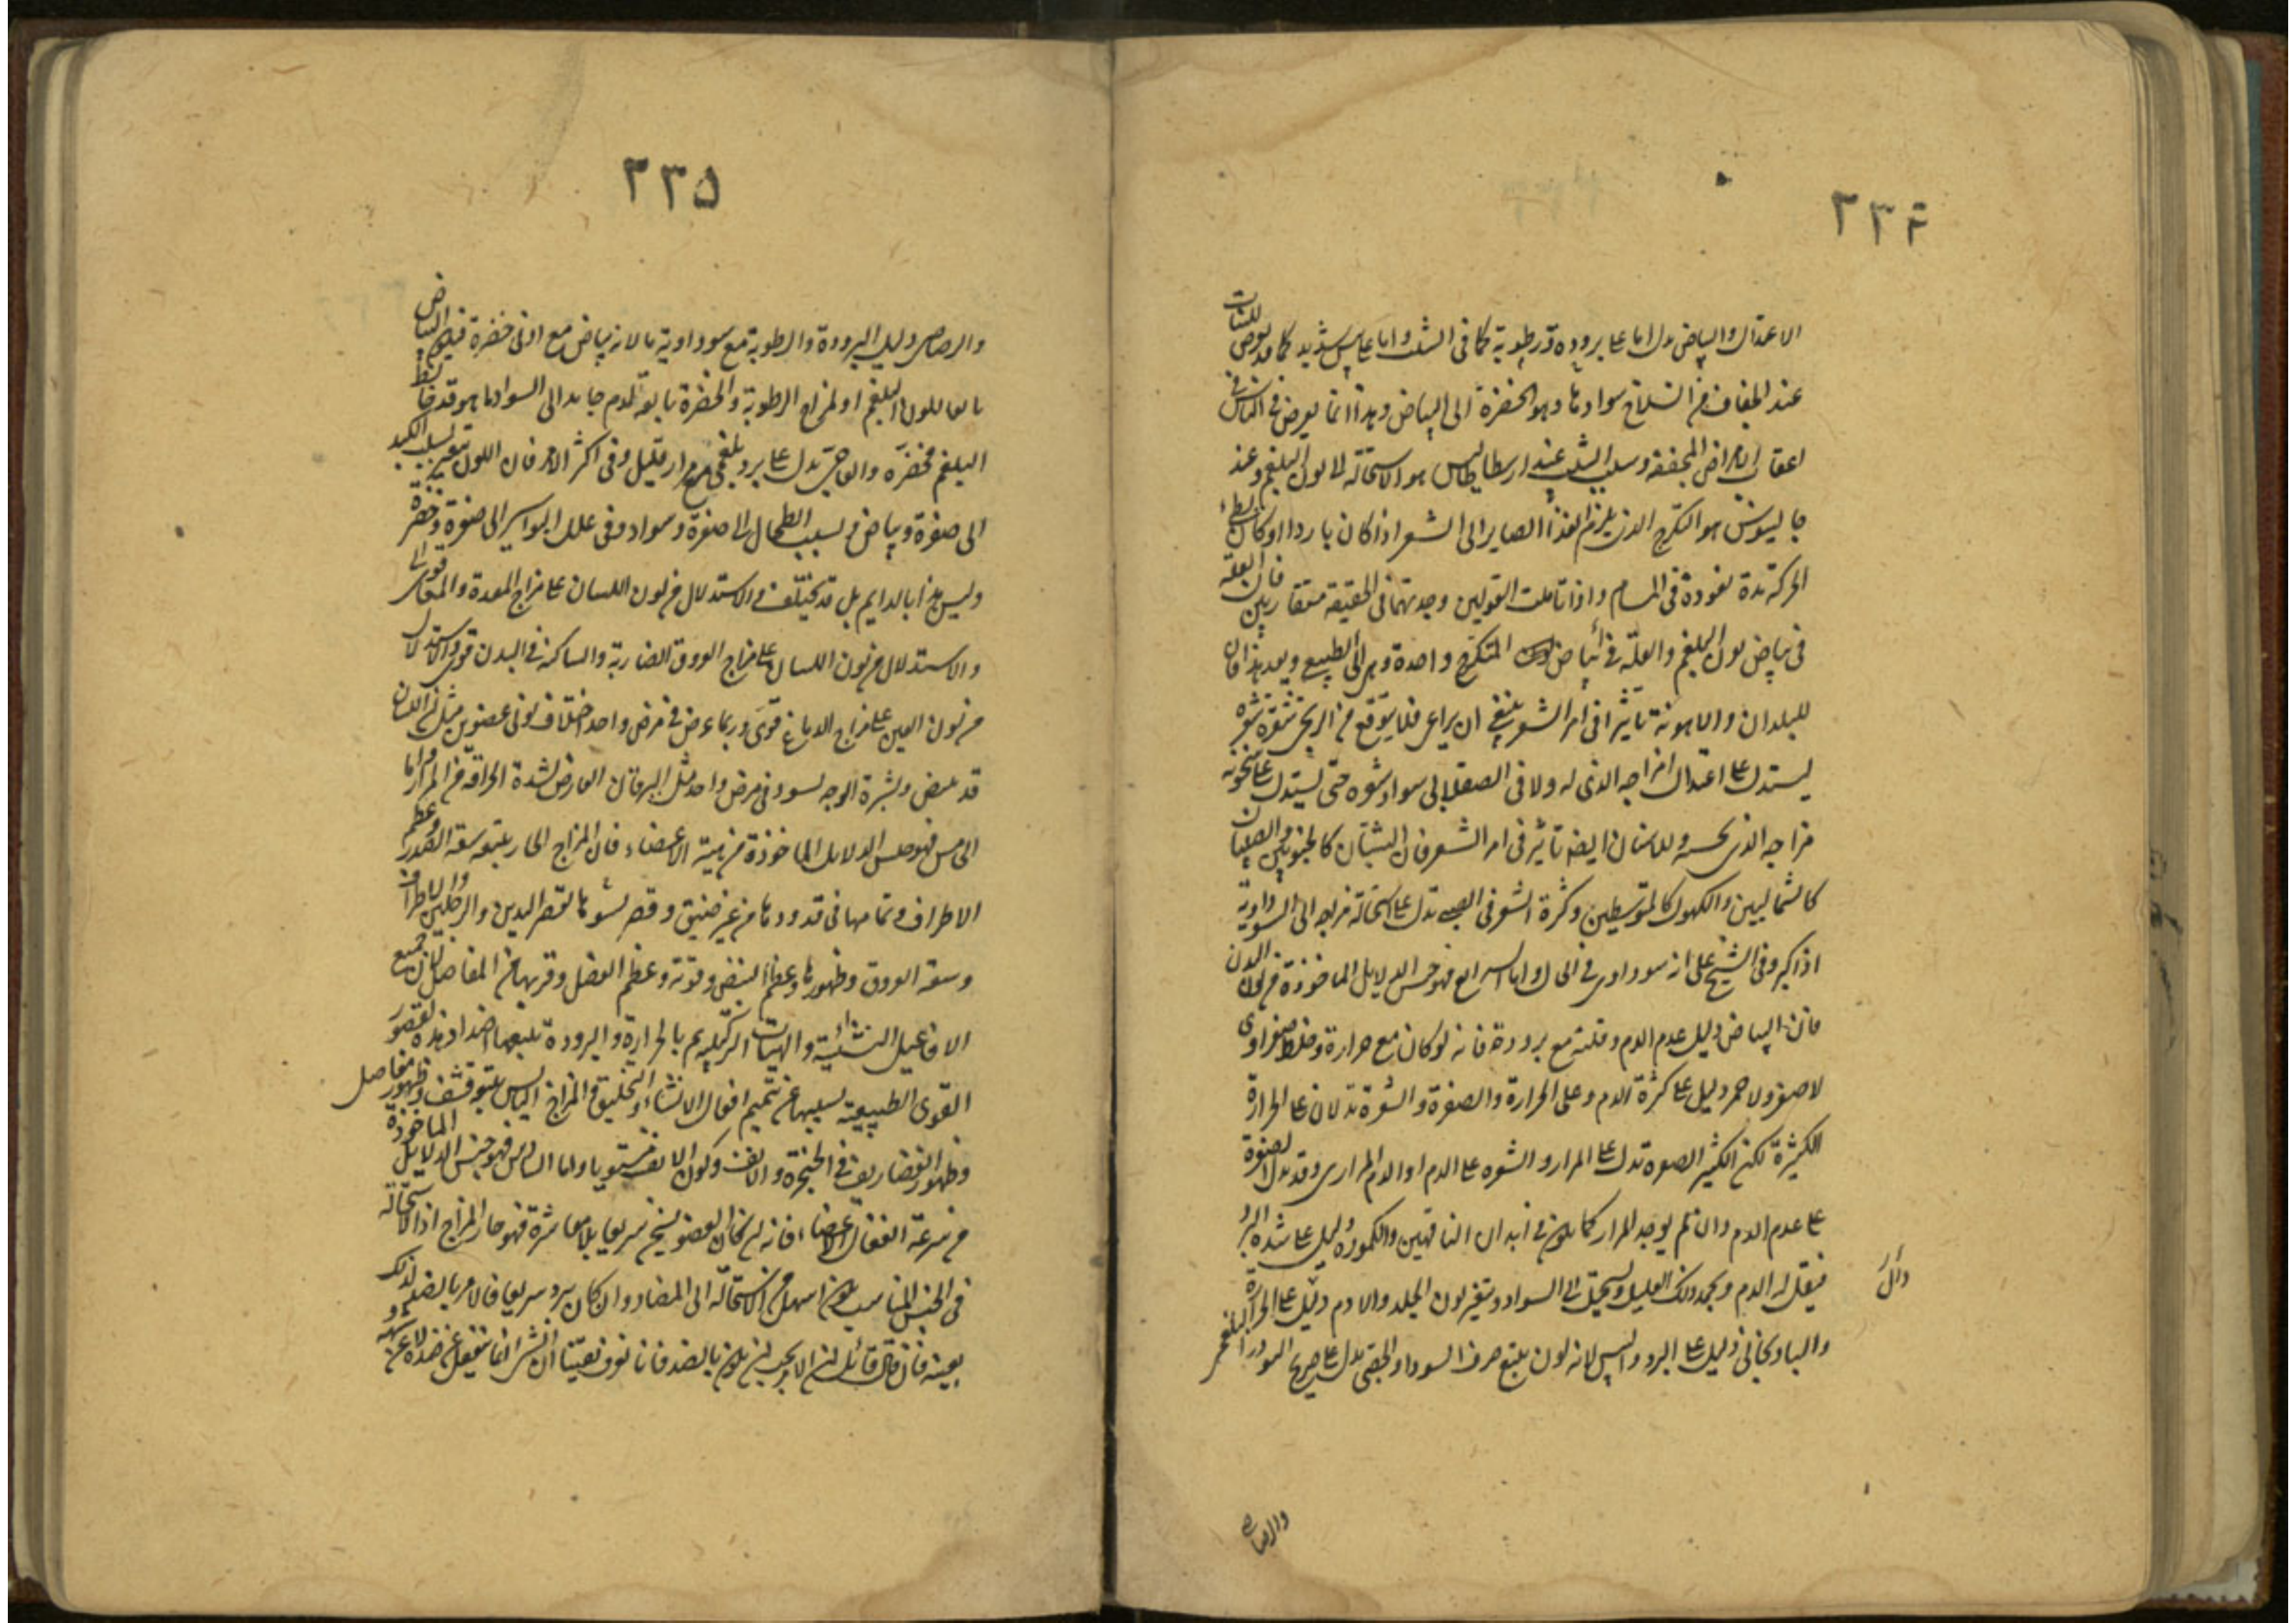 ٢٣٤
الاعتدال والبياض يدل اما على برودة ورطوبة كما فى الشيب واما على يبس شديد كما قد يعرض للنبات
عند الجفاف من انسلاخ سوادها وهو الخضرة الى البياض وهذا انما يعرض فى الناس فى
اعقاب الامراض المجففة وسبب الشيب عند ارسطاطاليس هو الاستحالة الى لون البلغم وعند
جالينوس هو التكرج الذى يلزم الغذاء الصاير الى الشعر اذا كان باردا وكان بطىء
الحركة مدة نفوذه فى المسام واذا تاملت القولين وجدتهما فى الحقيقة متقاربين فان العلة
فى بياض لون البلغم والعلة فى ابياض المتكرج واحدة وهى الى الطبيعى وبعد هذا فان
للبلدان والاهوية تاثيرا فى امر الشعر ينبغى ان يراعى فلا يتوقع من الزنجى شقرة شعره
ليستدل على اعتدال مزاجه الذى له ولا فى الصقلابى سواد شعره حتى يستدل على سخونة
مزاجه الذى بحسبه وللاسنان ايضا تاثير فى امر الشعر فان الشبان كالجنوبيين والصبيان
كالشماليين والكهول كالمتوسطين وكثرة الشعر فى الصبى تدل على استحالة مزاجه الى السوداوية
اذا كبر وفى الشيخ على انه سوداوى فى الحال واما الرابع فهو جنس الدلايل الماخوذة من لون البدن
فان البياض دليل عدم الدم وقلته مع برودة فانه لو كان مع حرارة وخلط صفراوى
لاصفر والاحمر دليل على كثرة الدم وعلى الحرارة والصفرة والشقرة تدلان على الحرارة
الكثيرة لكن الكثير الصفرة تدل على المرار والشقرة على الدم او الدم المرارى وقد تدل الصفرة
على عدم الدم وان لم يوجد المرار كما يكون فى ابدان الناقهين والكمودة دليل على شدة البرد
فيقل له الدم ويجمد ذلك القليل ويستحيل الى السواد ويتغير لون الجلد والادم دليل على الحرارة
والباذنجانى دليل على البرد واليبس لانه لون يتبع صرف السوداء والجصى يدل على صرف البرد والبلغمية
دال
والرصاصى
٢٣٥
والرصاصى دليل البرودة والرطوبة مع سوداوية ما لانه بياض مع ادنى خضرة فيكون البياض
تابعا للون البلغم او لمزاج الرطوبة والخضرة تابعة لدم جامد الى السواد ما هو قد خالط
البلغم فخضره والعاجى يدل على برد بلغمى مع مرار قليل وفى اكثر الامر فان اللون يتغير بسبب الكبد
الى صفرة وبياض وبسبب الطحال الى صفرة وسواد وفى علل البواسير الى صفرة وخضرة
وليس هذا بالدايم بل قد يختلف والاستدلال من لون اللسان على مزاج المعدة والمعا قوى
والاستدلال من لون اللسان على مزاج العروق الضاربة والساكنة فى البدن قوى والاستدلال
من لون العين على مزاج الدماغ قوى وربما عرض فى مرض واحد اختلاف لونى عضوين مثل ان اللسان
قد يبيض وبشرة الوجه تسود فى مرض واحد مثل اليرقان العارض لشدة الحراقة من المرار واما
الخامس فهو جنس الدلايل الماخوذة من هيئة الاعضاء فان المزاج الحار يتبعه سعة الصدر وعظم
الاطراف وتمامها فى قدودها من غير ضيق وقصر لقصر اليدين والرجلين والاطراف
وسعة العروق وظهورها وعظم النبض وقوته وعظم العضل وقربها من المفاصل لان جميع
الافاعيل النشائية والهيات التركيبية تتم بالحرارة والبرودة يتبعها اضداد هذه لقصور
القوى الطبيعية بسببها عن تتميم افعال الانشاء والتخليق والمزاج اليابس يتبعه قشف وظهور مفاصل
وظهور الغضاريف فى الحنجرة والانف وكون الانف مستويا واما السادس فهو جنس الدلايل الماخوذة
من سرعة انفعال الاعضاء فانه ان كان العضو يسخن سريعا بلا معاشرة فهو حار المزاج اذ الاستحالة
فى الجنس المناسب يكون اسهل من الاستحالة الى المضاد وان كان يبرد سريعا فالامر بالضد لذلك
بعينه فان قال قائل ان الامر يجب ان يكون بالضد فانا نعرف يقينا ان الشىء انما ينفعل عن ضده لا عن شبهه